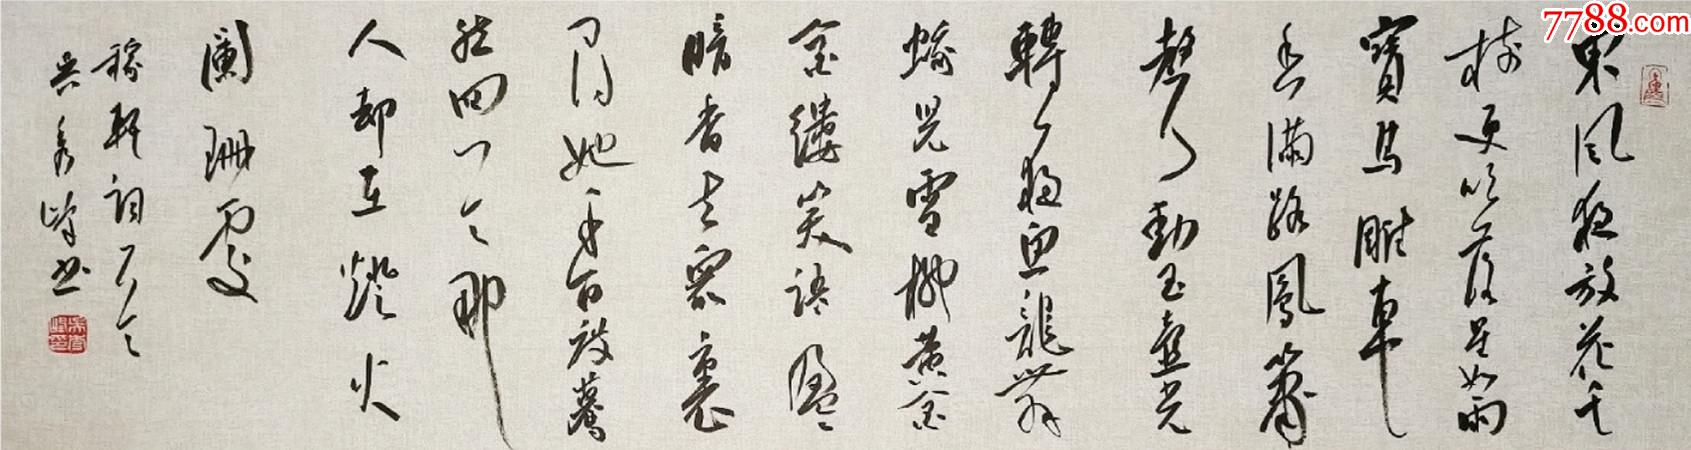 7788.com
東风夜放花千
树更吹落星如雨
寶马雕車
香满路鳳簫
聲动玉壺光
轉一夜魚龍舞
蛾兒雪柳黄金
金縷笑語盈盈
暗香去衆裏
尋她千百度驀
然回首那
人却在燈火
闌珊處
稼軒詞一首
吴秀峰书